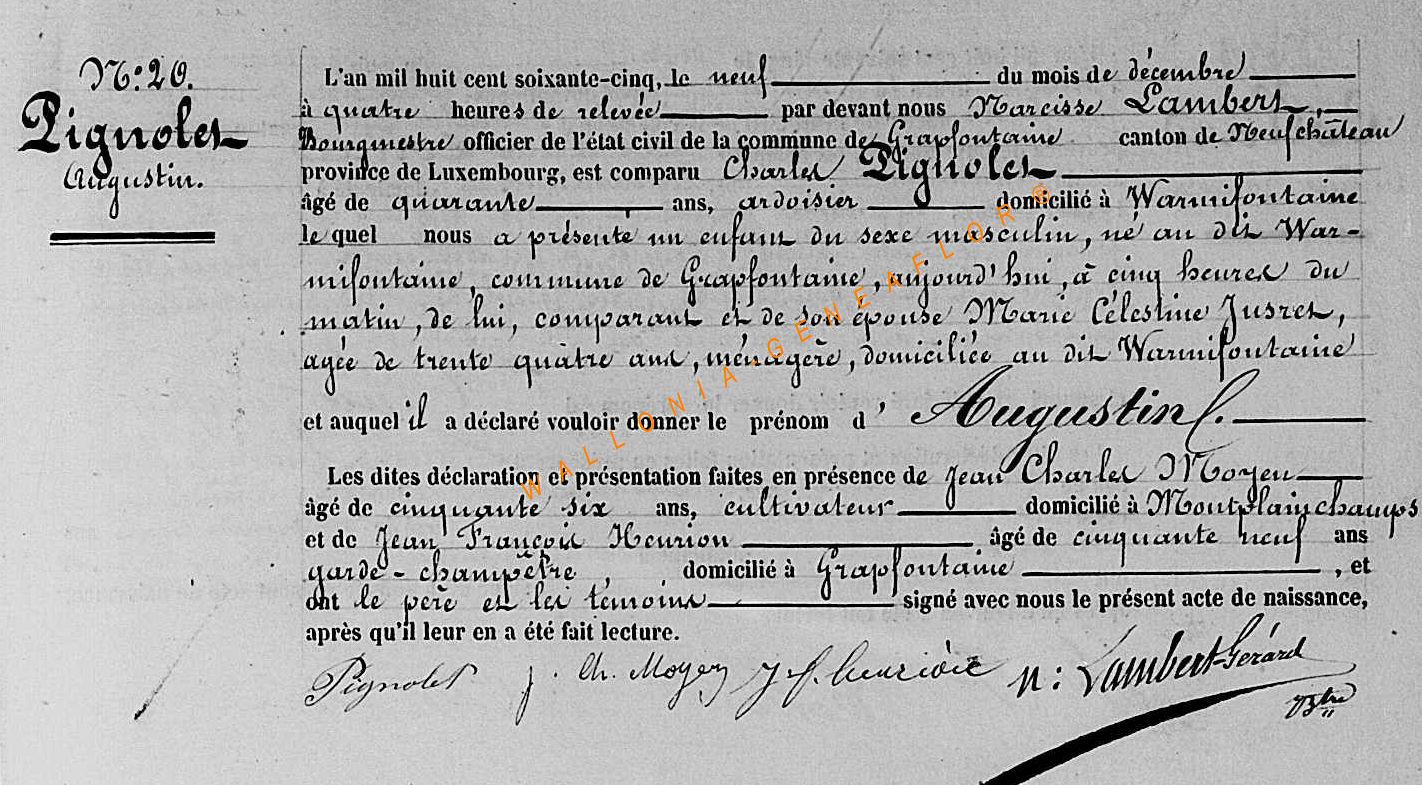 N°: 20.
Pignolet
Augustin.
L'an mil huit cent soixante-cinq, le neuf du mois de décembre
à quatre heures de relevée par devant nous Narcisse Lambert,
Bourgmestre officier de l'état civil de la commune de Grapfontaine canton de Neufchâteau
province de Luxembourg, est comparu Charles Pignolet
âgé de quarante ans, ardoisier domicilié à Warmifontaine
le quel nous a présenté un enfant du sexe masculin, né au dit War-
mifontaine, commune de Grapfontaine, aujourd'hui, à cinq heures du
matin, de lui, comparant et de son épouse Marie Célestine Jusret,
agée de trente quatre ans, ménagère, domiciliée au dit Warmifontaine
et auquel il a déclaré vouloir donner le prénom d' Augustin
Les dites déclaration et présentation faites en présence de Jean Charles Moyen
âgé de cinquante six ans, cultivateur domicilié à Montplainchamps
et de Jean François Henrion âgé de cinquante neuf ans
garde-champêtre, domicilié à Grapfontaine, et
ont le père et les témoins signé avec nous le présent acte de naissance,
après qu'il leur en a été fait lecture.
Pignolet J. Ch. Moyen J f. henrion N: Lambert-Gérard
Btre
WALLONIA-GENEAFLOR®